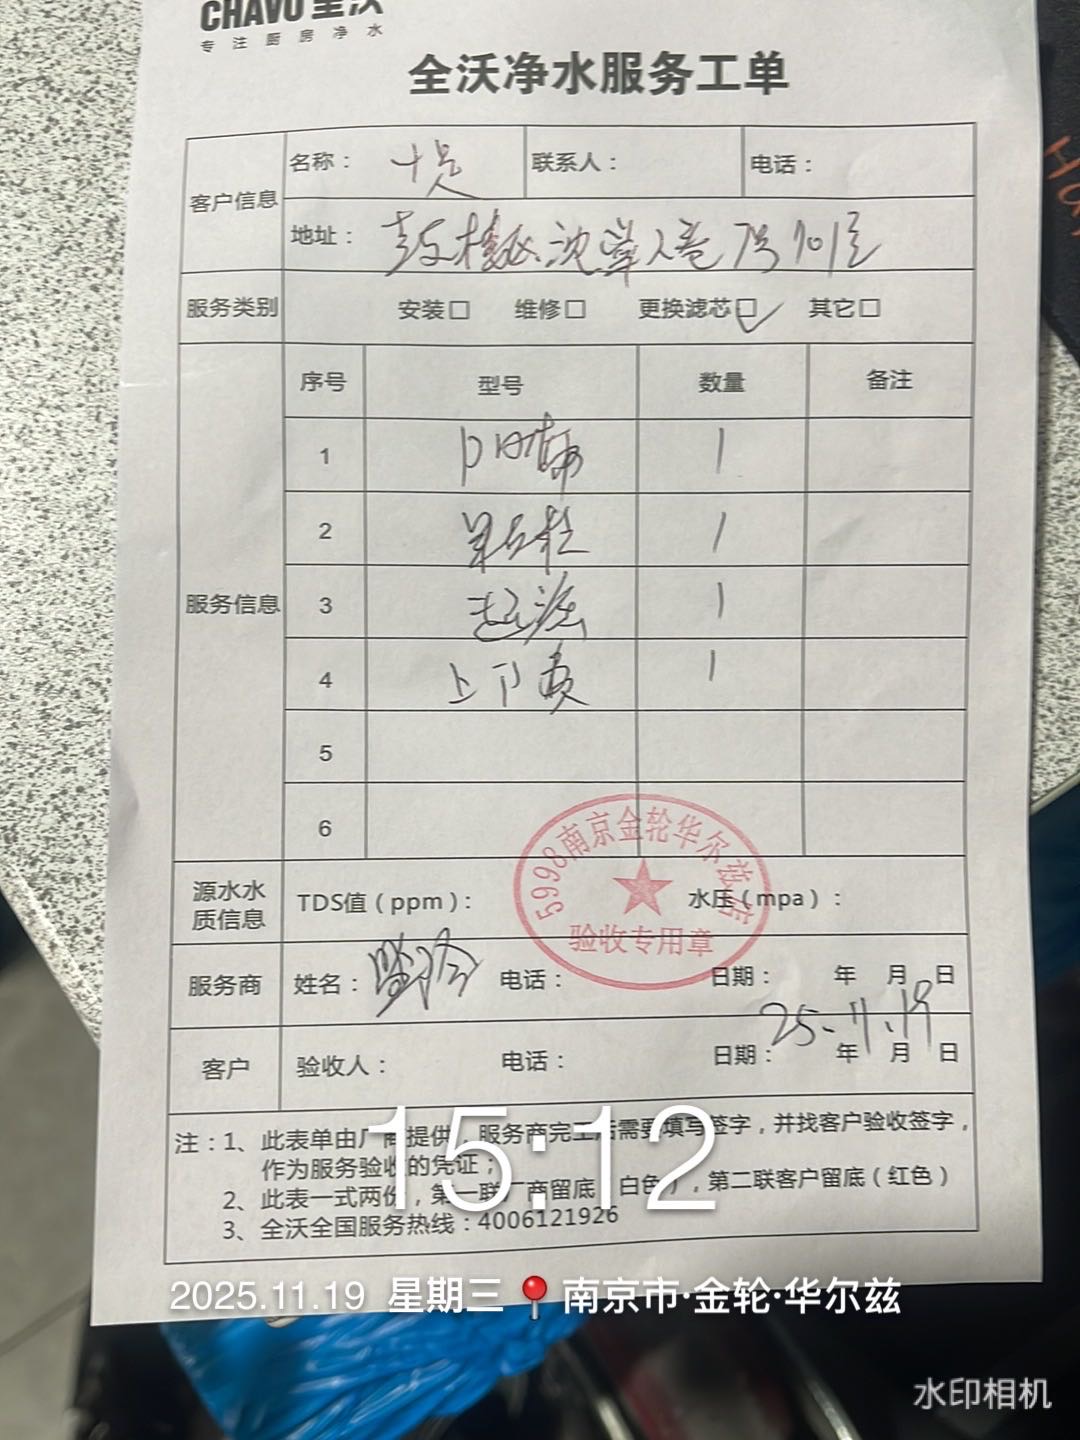 CHAVO 全沃
专注厨房净水
全沃净水服务工单
客户信息 名称： 联系人： 电话：
地址： 鼓楼区沈举人巷7号101室
服务类别 安装□ 维修□ 更换滤芯□✓ 其它□
服务信息 序号 型号 数量 备注
1 1
2 1
3 1
4 1
5
6
源水水质信息 TDS值（ppm）： 水压（mpa）：
5998南京金轮华尔兹店
验收专用章
服务商 姓名： 电话： 日期： 年 月 日
25.11.19
客户 验收人： 电话： 日期： 年 月 日
注：1、此表单由厂商提供，服务商完工后需要填写签字，并找客户验收签字，
作为服务验收的凭证；
2、此表一式两份，第一联厂商留底（白色），第二联客户留底（红色）
3、全沃全国服务热线：4006121926
15:12
2025.11.19 星期三 南京市·金轮·华尔兹
水印相机